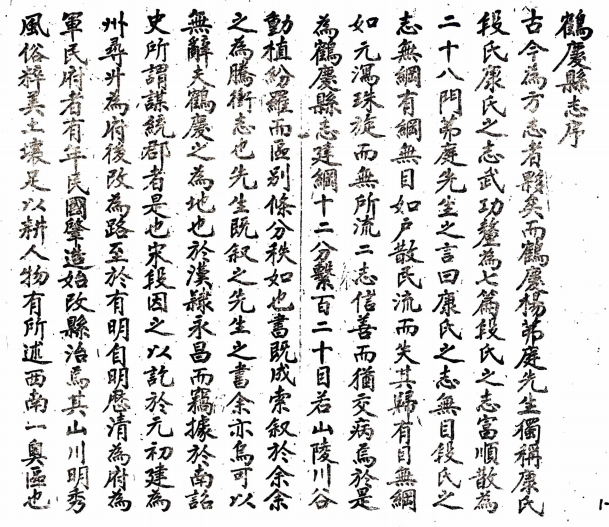 鶴慶縣志序
古今為方志者夥矣而鶴慶楊苐庭先生獨稱康氏
段氏康氏之志武功釐為七篇段氏之志富順散為
二十八門苐庭先生之言曰康氏之志無目段氏之
志無綱有綱無目如户散民流而失其歸有目無綱
如元渴珠旋而無所流二志信善而猶交病焉於是
為鶴慶縣志建綱十二分繫百二十目若山陵川谷
動植紛羅而區别條分秩如也書既成索叙於余余
之為騰衝志也先生既叙之先生之書余亦烏可以
無辭夫鶴慶之為地也於漢隸永昌而竊據於南詔
史所謂謀統郡者是也宋段因之以訖於元初建為
州尋升為府後改為路至於有明自明歷清為府為
軍民府者有年民國肇造始改縣治焉其山川明秀
風俗粹美土壤足以耕人物有所述西南一奥區也